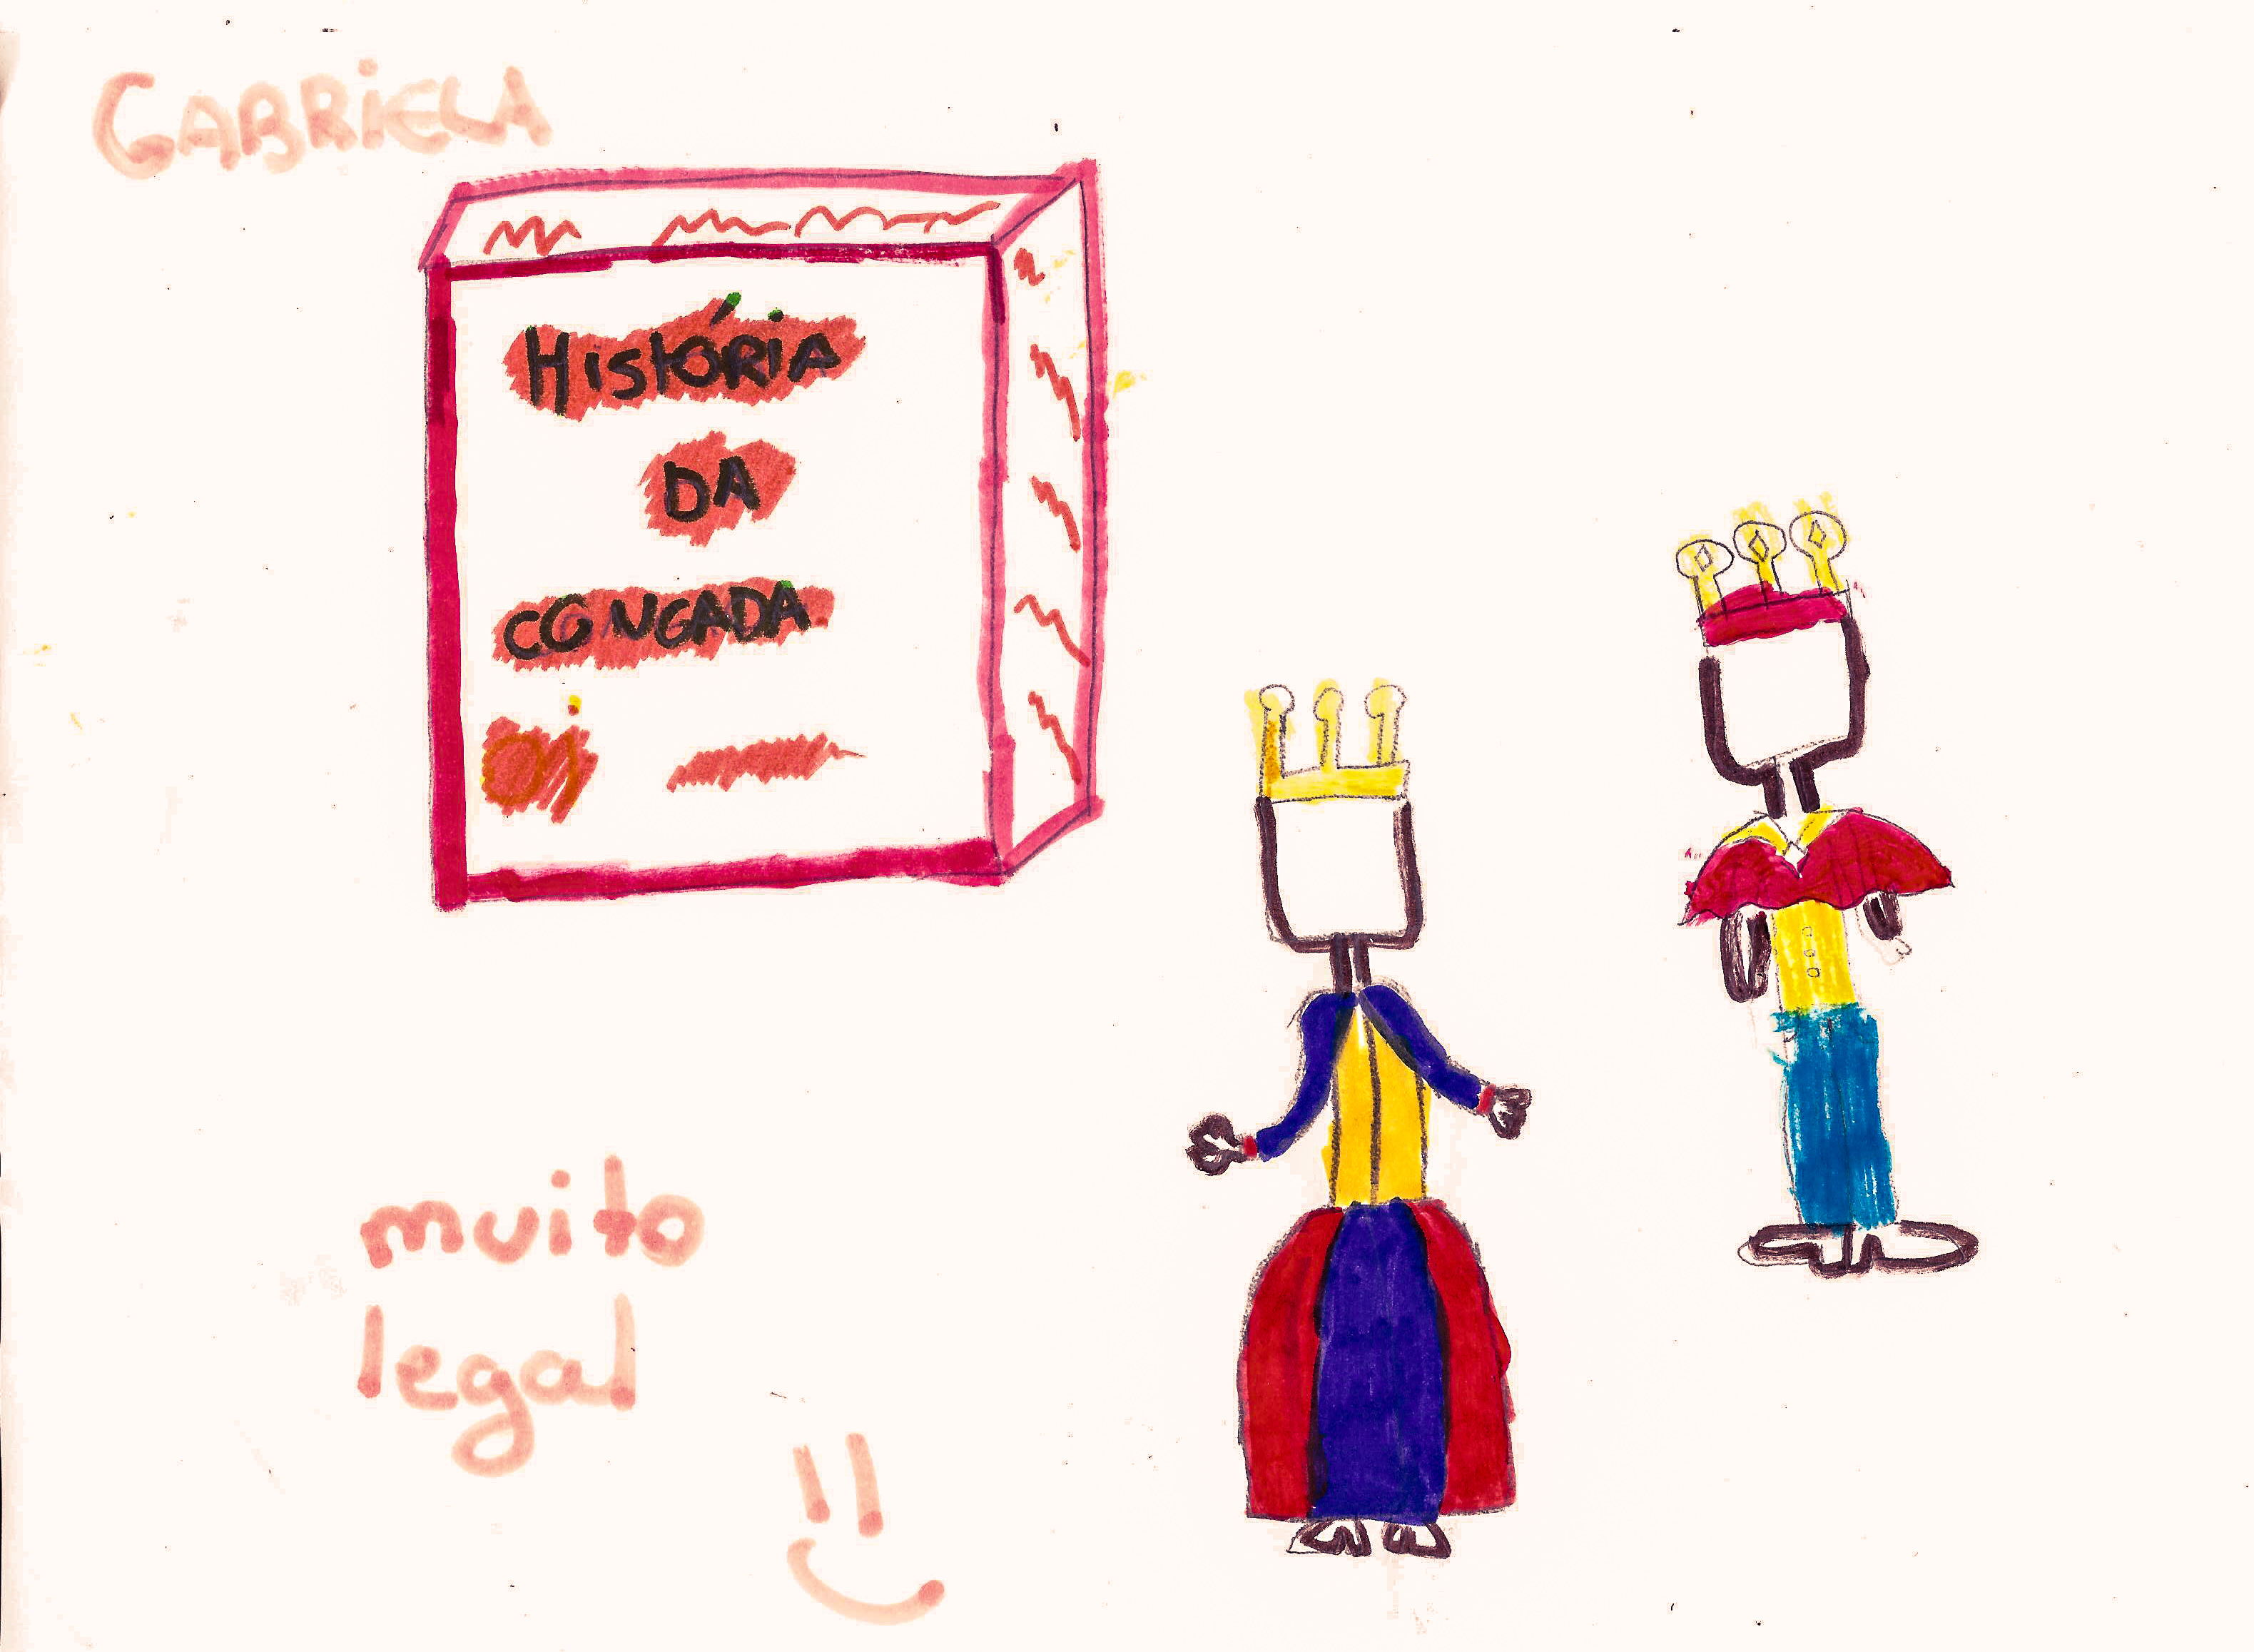 GABRIELA
HISTÓRIA
DA
CONGADA
Oi
muito
legal